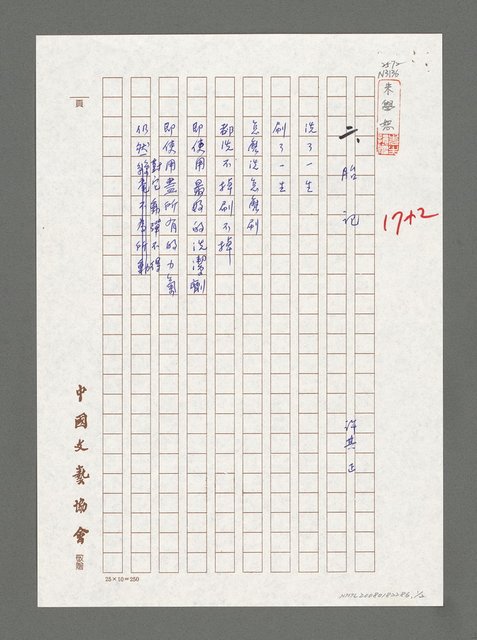 2572
N3136
朱學恕
17+2
二、胎記 許其正
洗了一生
刷了一生
怎麼洗怎麼刷
都洗不掉刷不掉
即使用最好的洗潔劑
即使用盡所有的力氣
仍然絲毫不為所動
對它動彈不得
頁
中國文藝協會 敬贈
25×10=250
NMTL20080182286, 1/2